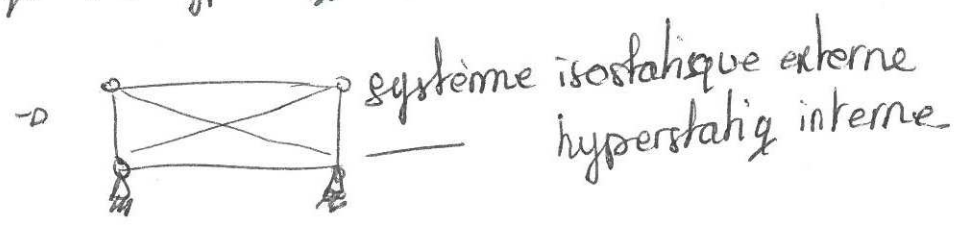 système isostatique externe
hyperstatiq interne